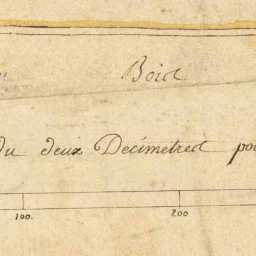 Bois
du deux Decimetres po
100. 200